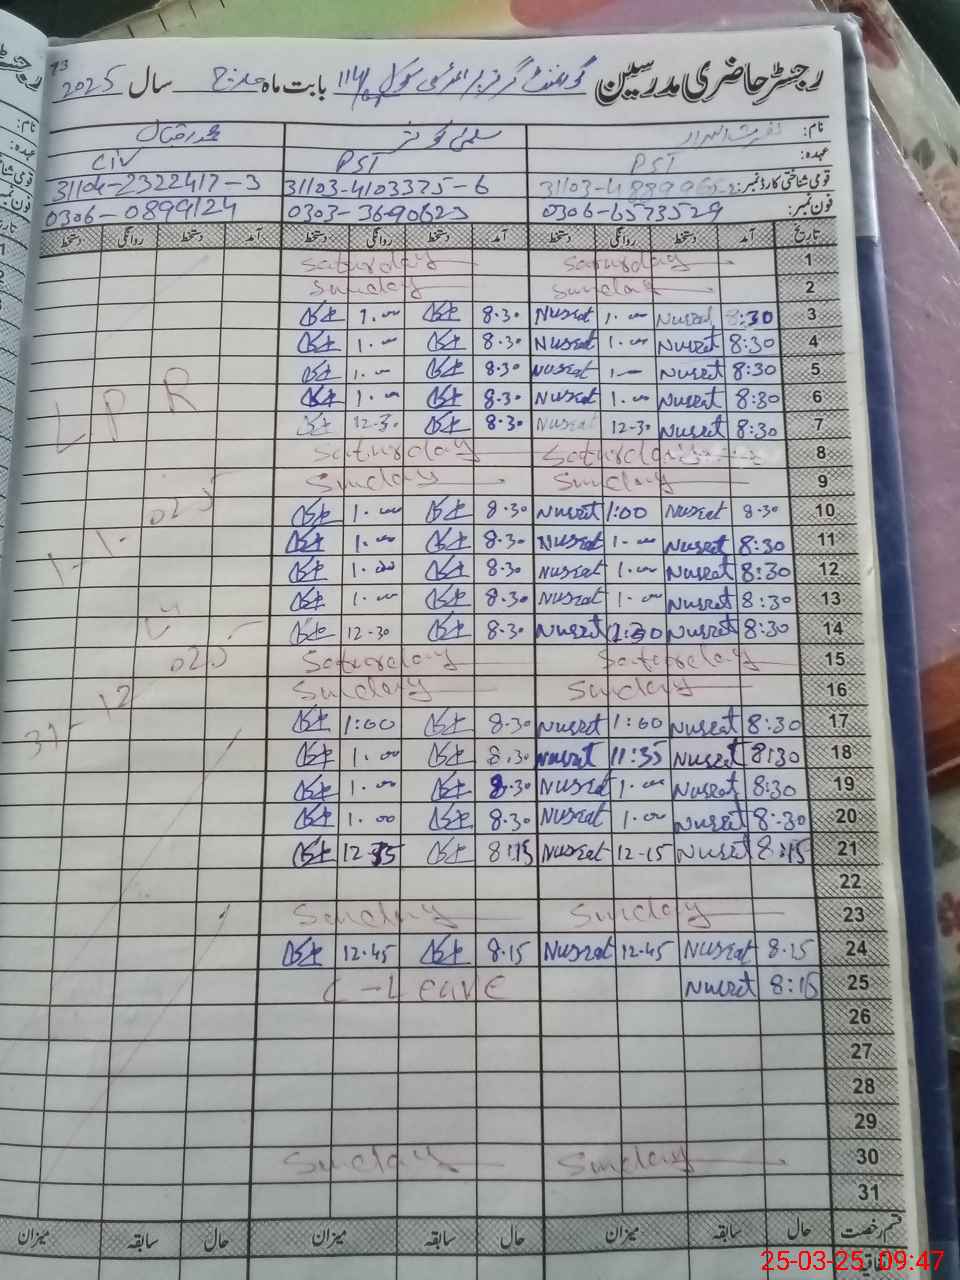 رجسٹر حاضری مدرسین گورنمنٹ گرلز پرائمری سکول 114 بابت ماہ مارچ سال 2025
93
نام: نصرت سلمیٰ کوثر محمد اقبال
عہدہ: PST PST C/V
قومی شناختی کارڈ نمبر: 31103-4103375-6 31104-2322417-3
فون نمبر: 0306-6573529 0303-3690623 0306-0899124
تاریخ آمد دستخط روانگی دستخط آمد دستخط روانگی دستخط آمد دستخط روانگی دستخط
1 Saturday Saturday
2 Sunday Sunday
3 8:30 Nusrat 1.00 Nusrat 8.30 1.00
4 8:30 Nusrat 1.00 Nusrat 8.30 1.00
5 8:30 Nusrat 1— Nusrat 8.30 1.00
6 8:30 Nusrat 1.00 Nusrat 8.30 1.00
7 8:30 Nusrat 12-30 Nusrat 8.30 12-30
L P R
8 Saturday Saturday
9 Sunday Sunday
10 8.30 Nusrat 1:00 Nusrat 8.30 1.00
11 8:30 Nusrat 1.00 Nusrat 8.30 1.00
1-1-025
12 8:30 Nusrat 1.00 Nusrat 8.30 1.00
13 8:30 Nusrat 1.00 Nusrat 8.30 1.00
14 8:30 Nusrat 12:30 Nusrat 8.30 12-30
15 Saturday Saturday
16 Sunday Sunday
31-12 025
17 8:30 Nusrat 1:00 Nusrat 8.30 1:00
18 8:30 Nusrat 11:35 Nusrat 8.30 1.00
19 8:30 Nusrat 1.00 Nusrat 8.30 1.00
20 8:30 Nusrat 1.00 Nusrat 8.30 1.00
21 8:15 Nusrat 12-15 Nusrat 8:15
22
23 Sunday Sunday
24 8.15 Nusrat 12.45 Nusrat 8.15 12.45
25 8:15 Nusrat C-Leave
26
27
28
29
30 Sunday Sunday
31
قسم رخصت حال سابقہ میزان حال سابقہ میزان حال سابقہ میزان
25-03-25 09:47